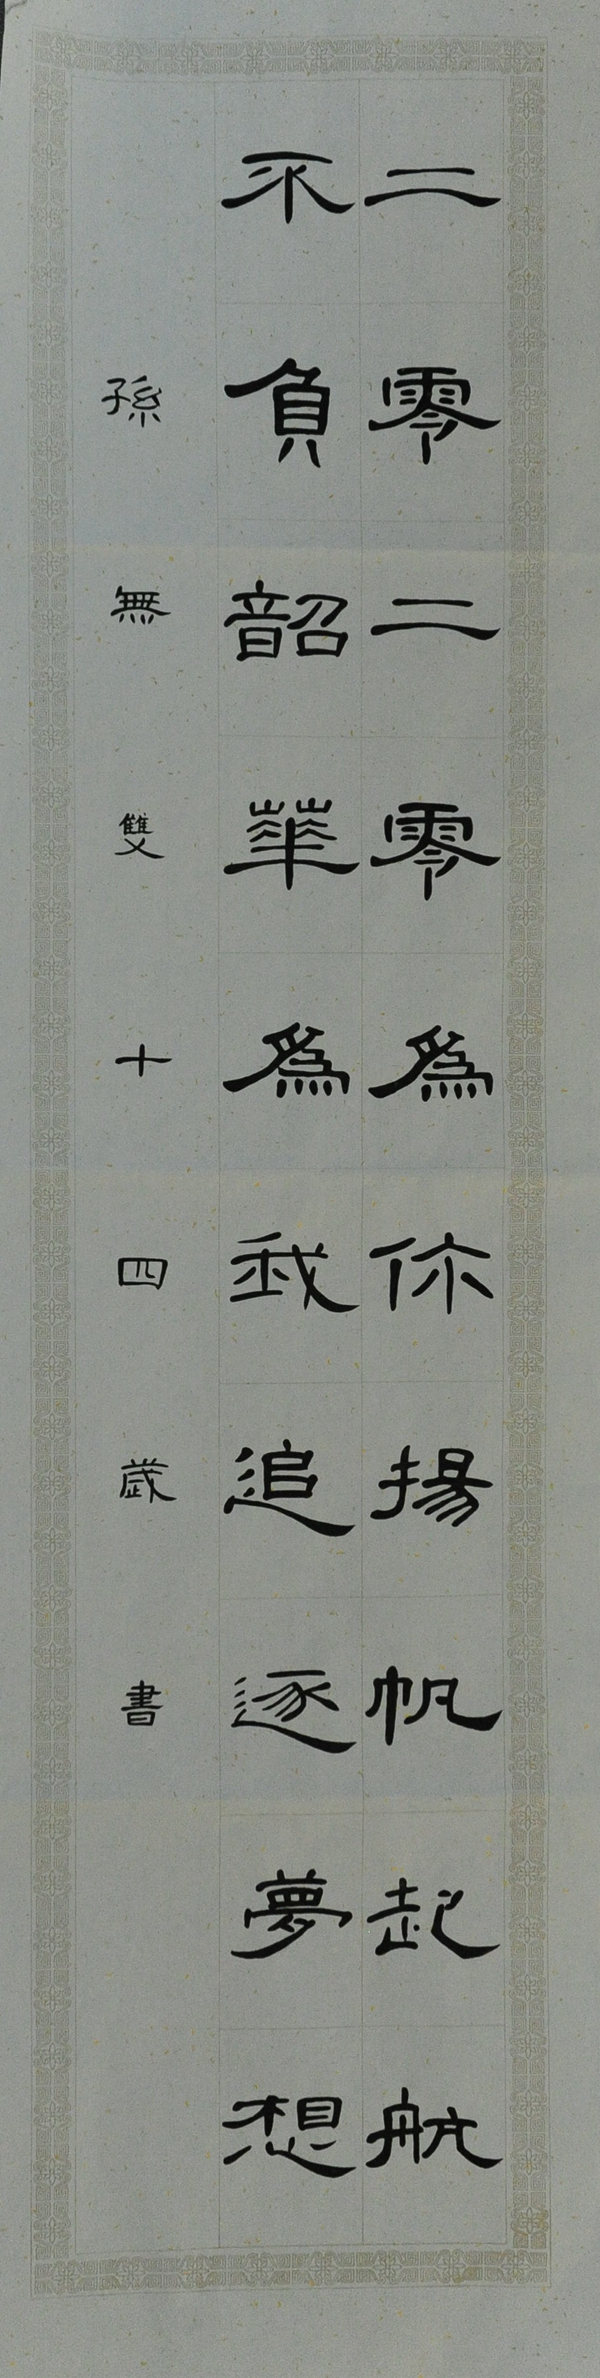 二零二零為你揚帆起航
不負韶華為我追逐夢想
孫無雙十四歲書